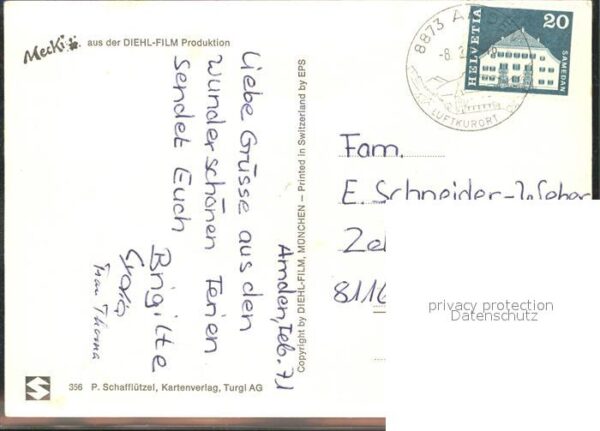 Mecki aus der DIEHL-FILM Produktion
Amden, Feb. 71
Liebe Grüsse aus den
wunderschönen Ferien
sendet Euch
Brigitte
Frau Thoma
Copyright by DIEHL-FILM, MÜNCHEN – Printed in Switzerland by EPS
356 P. Schafflützel, Kartenverlag, Turgi AG
8873
-8. 2
LUFTKURORT
HELVETIA
20
SAMEDAN
Fam.
E. Schneider-Weber
8116
privacy protection
Datenschutz